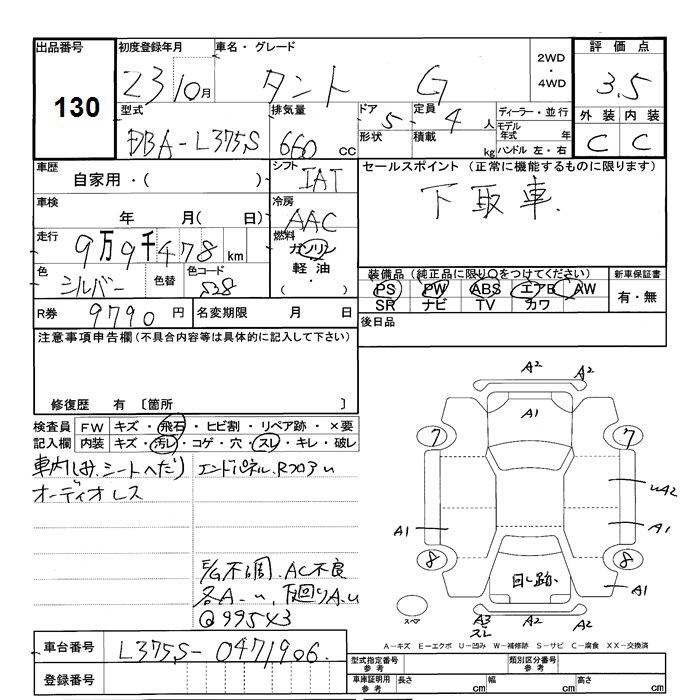 出品番号 初度登録年月 車名・グレード 2WD・4WD 評価点
130 23 10月 タント G 3.5
型式 排気量 ドア 5 定員 4人 ディーラー・並行 外装 内装
DBA-L375S 660cc 形状 積載 kg モデル年式 年 C C
ハンドル 左・右
車歴 シフト セールスポイント (正常に機能するものに限ります)
自家用・( ) IAT 下取車.
車検 冷房
年 月( 日) AAC
走行 燃料
9万9千478km ガソリン
色 色替 色コード 軽油
シルバー 528 ( ・ )
装備品(純正品に限り○をつけてください) 新車保証書
PS PW ABS エアB AW 有・無
SR ナビ TV カワ
R券 9790円 名変期限 月 日 後日品
注意事項申告欄(不具合内容等は具体的に記入して下さい)
修復歴 有 〔箇所 〕
検査員 FW キズ・飛石・ヒビ割・リペア跡・×要
記入欄 内装 キズ・汚レ・コゲ・穴・スレ・キレ・破レ
車内しみ.シートへたり エンドパネル.Rフロアu
オーディオレス
E/G不調.AC不良
各A-u,下廻りA.u
@99543
A2 A2
A1
7 7
uA2
A1 A1
8 8
凹し跡 A1
スペア A3 スレ A2 A2
A-キズ E-エクボ U-凹み W-補修跡 S-サビ C-腐食 XX-交換済
車台番号 L375S-0471906.
型式指定番号 参考 類別区分番号 参考
登録番号
車庫証明用 参考 長さ cm 幅 cm 高さ cm